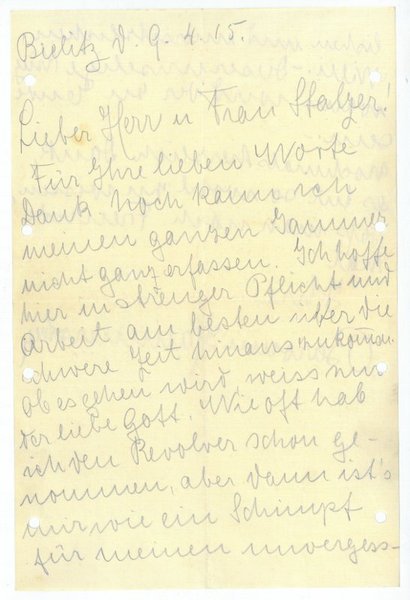 Bielitz d. 9. 4. 15.
Lieber Herr u Frau Stalzer!
Für Ihre lieben Worte
Dank noch kann ich
meinen ganzen Jammer
nicht ganz erfassen. Ich hoffe
hier in strenger Pflicht und
Arbeit am besten über die
schwere Zeit hinauszukommen.
Ob es gehen wird weiss nur
der liebe Gott. Wie oft hab
ich den Revolver schon ge-
nommen, aber dann ist's
mir wie ein Schimpf
für meinen unvergess-